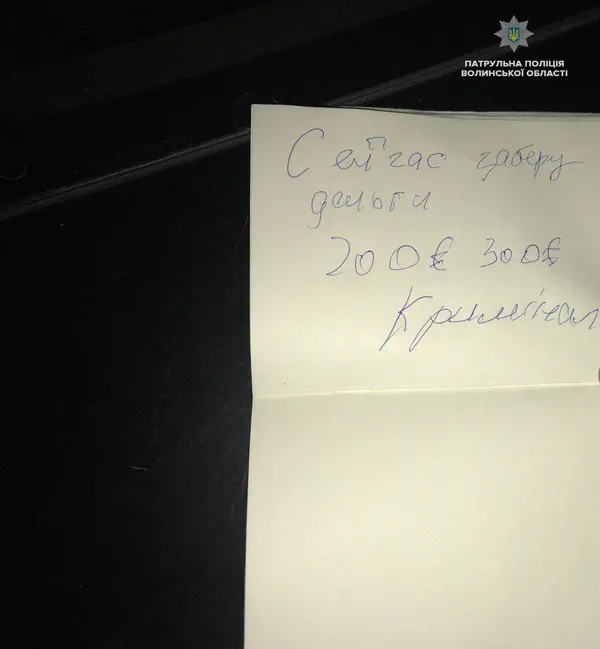 ПАТРУЛЬНА ПОЛІЦІЯ
ВОЛИНСЬКОЇ ОБЛАСТІ
Сейчас заберу
деньги
200€ 300€
Кримінал